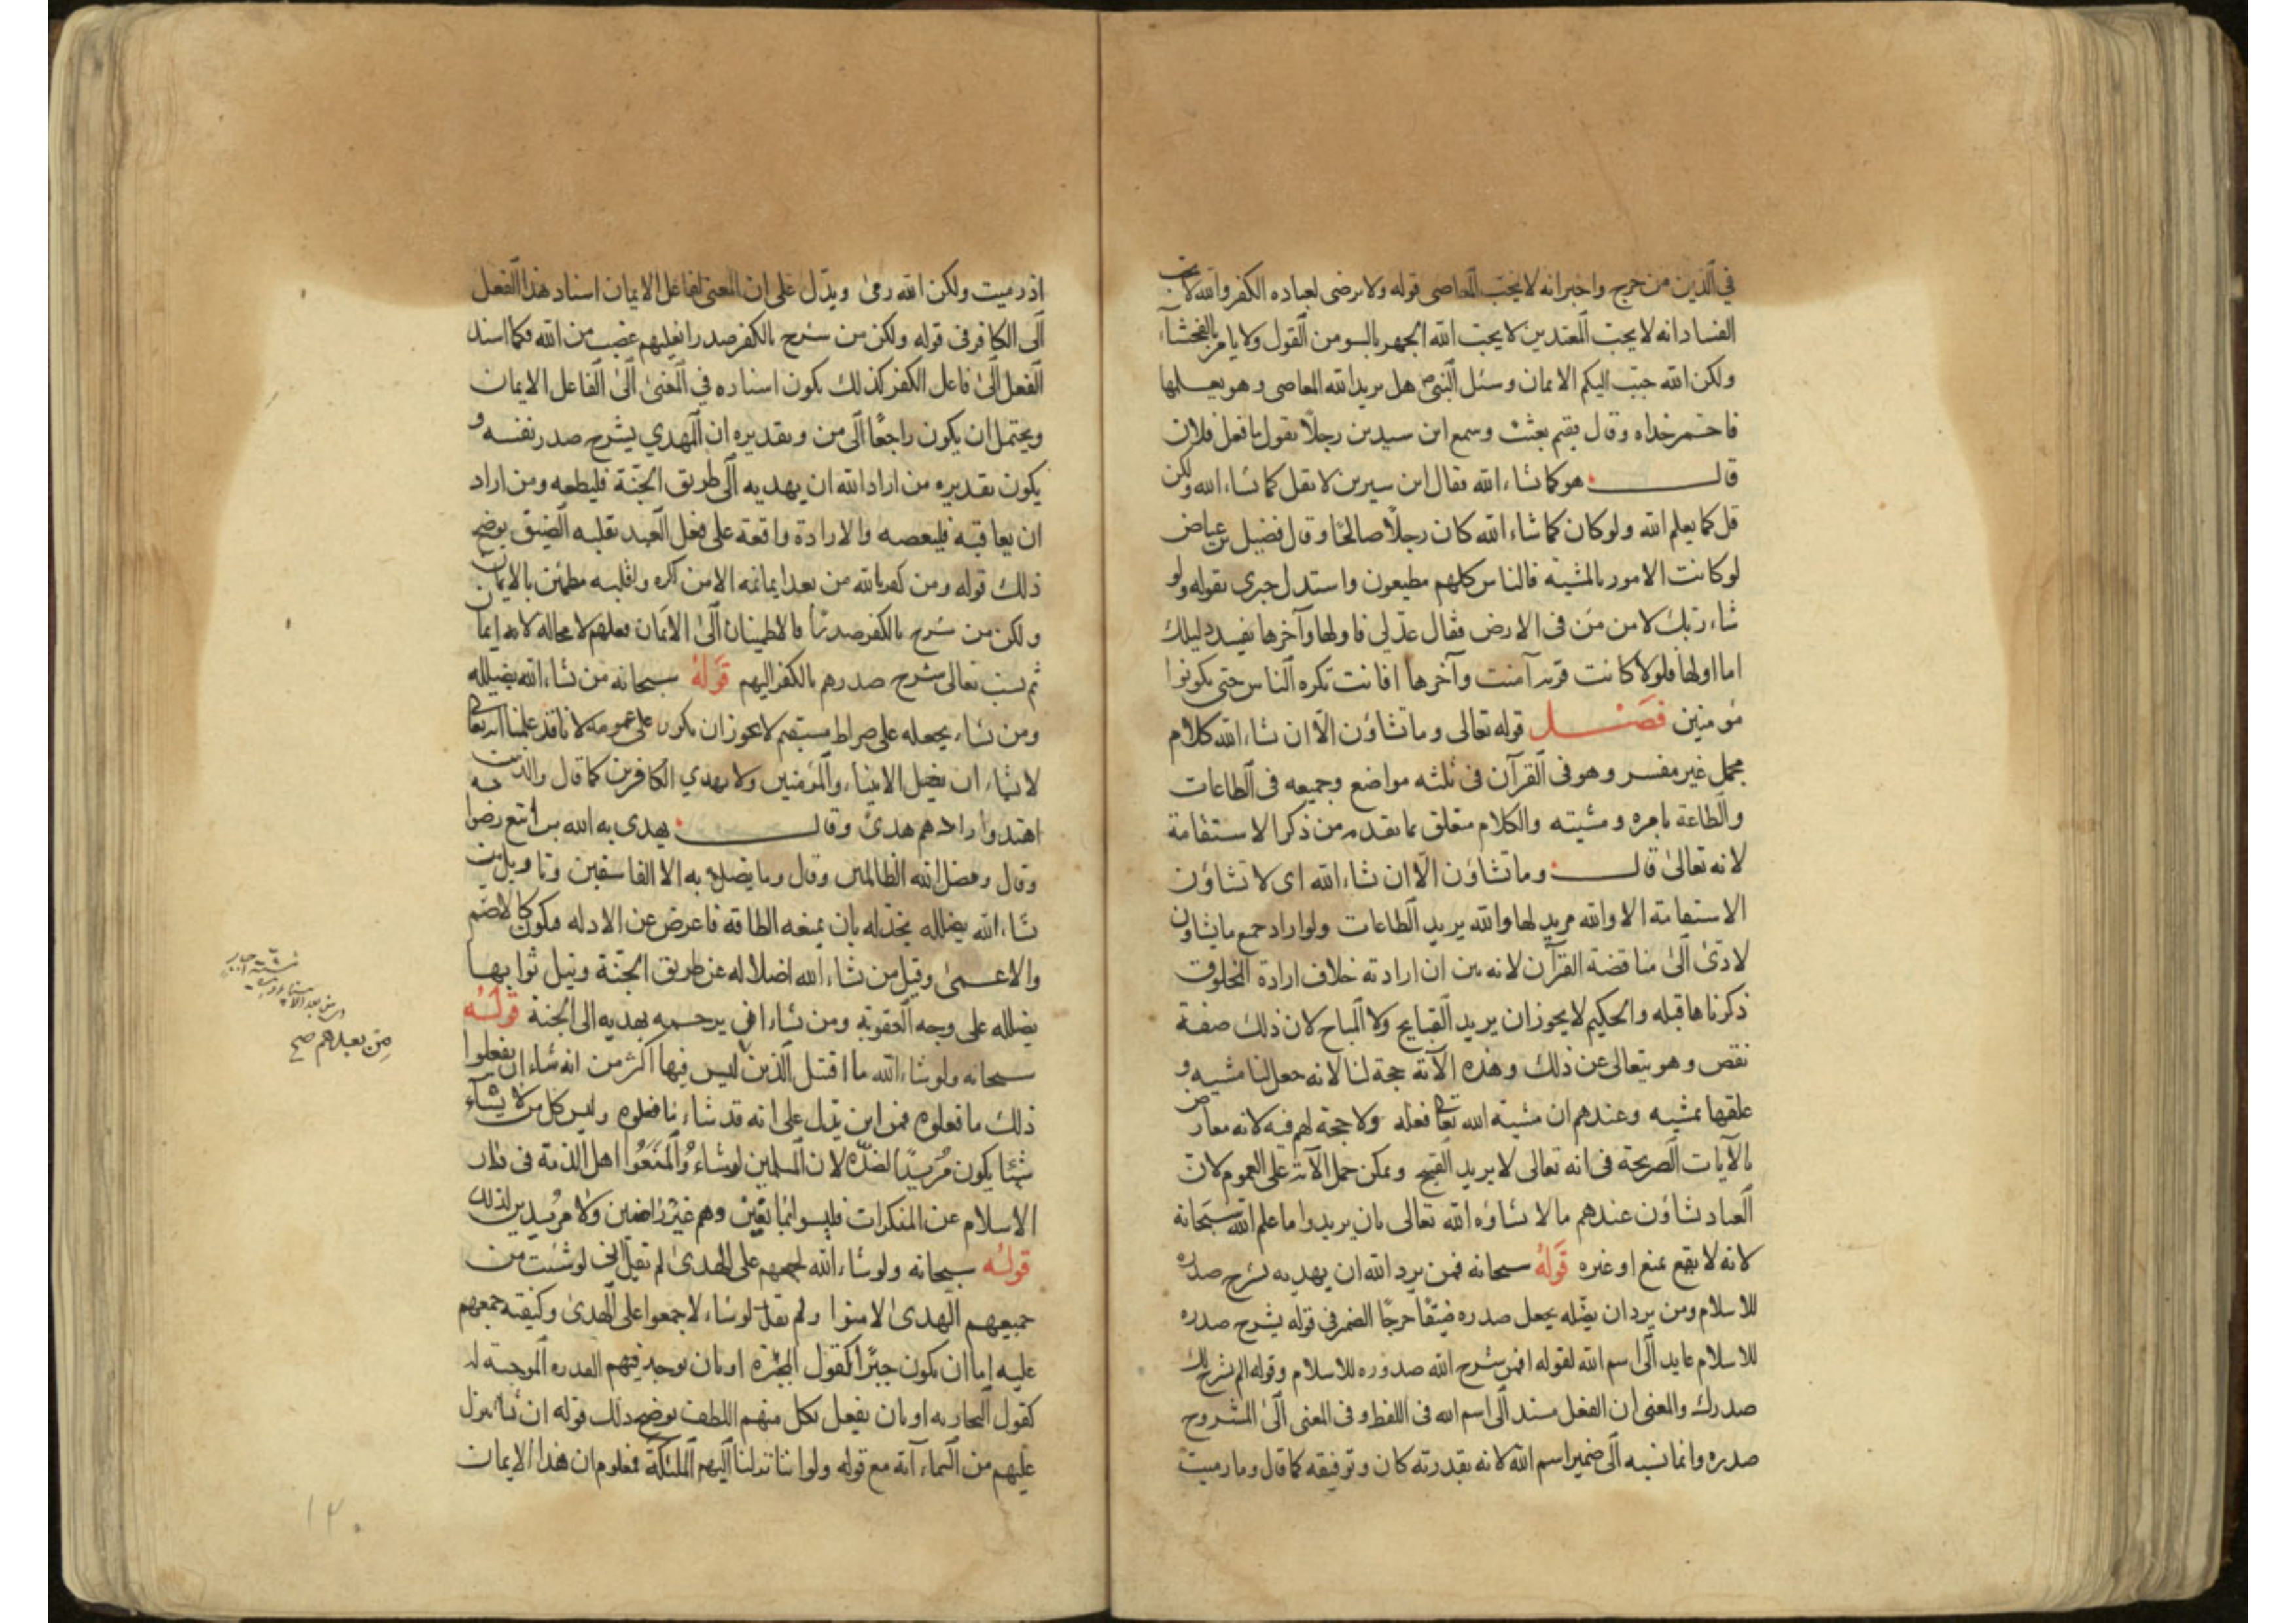 في الدين من حرج واخبر انه لا يحب المعاصى قوله ولا يرضى لعباده الكفر والله لا يحب
الفساد انه لا يحب المعتدين لا يحب الله الجهر بالسو من القول ولا يامر بالفحشآء
ولكن الله حبّب اليكم الايمان وسئل النبى هل يريد الله المعاصى وهو يعـــ
وقال بقيم بعثت وسمع ابن سيرين رجلاً يقول ما فعل فلان
قالــــ هو كما شاء الله فقال ابن سيرين لا تقل كما شاء الله ولكن
قل كما يعلم الله ولو كان كما شاء الله كان رجلاً صالحًا وقال فضيل بن عياض
لو كانت الامور بالمشية فالناس كلهم مطيعون واستدل جبرى بقوله ولو
شاء ربك لامن من فى الارض فقال عدلي فاولها وآخرها يفسد دليلك
اما اولها فلولا كانت قرية آمنت وآخرها افانت تكره الناس حتى يكونوا
مؤمنين فصــل قوله تعالى وما تشاؤن الّا ان شاء الله كلام
مجمل غير مفسر وهو فى القرآن فى ثلثه مواضع وجميعه فى الطاعات
والطاعة بامره ومشيته والكلام متعلق بما تقدم من ذكر الاستقامة
لانه تعالى قالــــ وما تشاؤن الّا ان شاء الله اى لا تشاؤن
الاستقامة الا والله مريد لها والله يريد الطاعات ولو اراد جمع ما يشاون
لادى الى مناقضة القرآن لانه بين ان ارادته خلاف ارادة المخلوق
ذكرناها قبله والحكيم لا يجوز ان يريد القبايح ولا المباح لان ذلك صفة
نقص وهو يتعالى عن ذلك وهذه الآية حجة لنا لانه جعل لنا مشيه و
علقها بمشيه وعندهم ان مشية الله تعا فعله ولا حجة لهم فيه لانه معارض
بالآيات الصريحة فى انه تعالى لا يريد القبيح ويمكن حمل الآية على العموم لان
العباد تشاؤن عندهم ما لا يشاؤه الله تعالى بان يريدوا ما علم الله سبحانه
لانه لا يقع بمنع او غيره قوله سبحانه فمن يرد الله ان يهديه يشرح صدره
للاسلام ومن يرد ان يضله يجعل صدره ضيقًا حرجًا الضمير فى قوله يشرح صدره
للاسلام عايد الى اسم الله لقوله افمن شرح الله صدوره للاسلام وقوله الم نشرح لك
صدرك والمعنى ان الفعل مسند الى اسم الله فى اللفظ وفى المعنى الى المشروح
صدره وانما نسبه الى ضمير اسم الله لانه بقدرته كان وتوفيقه كما قال وما رميت
اذ رميت ولكن الله رمى ويدل على ان المعنى لفاعل الايمان اسناد هذا الفعل
الى الكافر فى قوله ولكن من شرح بالكفر صدرا فعليهم غضب من الله فكما اسند
الفعل الى فاعل الكفر كذلك يكون اسناده في المعنى الى الفاعل الايمان
ويحتمل ان يكون راجعًا الى من وتقديره ان المهدي يشرح صدر نفسه و
يكون تقديره من اراد الله ان يهديه الى طريق الجنّة فليطعه ومن اراد
ان يعاقبه فليعصه والارادة واقعة على فعل العبد نقلبه الضيق يوضح
ذلك قوله ومن كفر بالله من بعد ايمانه الا من اكره وقلبه مطمئن بالايمان
ولكن من شرح بالكفر صدرًا فالاطمينان الى الايمان فعلهم لا محاله
ثم نسب تعالى شرح صدرهم بالكفر اليهم قوله سبحانه من يشاء الله يضلله
ومن يشاء يجعله على صراط مستقيم لا يجوز ان يكون على عمومه لانا قد علمنا انه تعا
لا يشاء ان يضل الانبياء والمؤمنين ولا يهدي الكافرين كما قال والذين
اهتدوا زادهم هدى وقالــــ يهدى به الله من اتبع رضوا
وقال ويضل الله الظالمين وقال وما يضل به الا الفاسقين وتاويل من
يشاء الله يضلله يخذله بان يمنعه الطاقة فاعرض عن الادله فيكون كالاصم
والاعمى وقيل من يشاء الله اضلاله عن طريق الجنّة ونيل ثوابها
يضلله على وجه العقوبة ومن يشاء ان يرحمه يهديه الى الجنة قوله
سبحانه ولو شاء الله ما اقتتل الذين ليس فيها اكثر من انه شاء ان يفعلوا
ذلك ما فعلوه فمن اين يدل على انه قد شاء ما فعلوه وليس كل من لا يشاء
شيئا يكون مريدًا لضدّه لان المسلمين لو شاءوا لمنعوا اهل الذمة فى دار
الاسلام عن المنكرات فليسوا وهم غير راضين ولا مريدين لذلك
قوله سبحانه ولو شاء الله لجمعهم على الهدى لم يقل انى لو شئت من
جميعهم الهدى لامنوا ولم يقل لو شاء لاجمعوا على الهدى وكيفية جمعهم
عليه اما ان يكون جبرًا كقول المجبّرة او بان يوجد فيهم القدره الموجبة له
كقول النجاريه او بان يفعل بكل منهم اللطف يوضح ذلك قوله ان نشا ننزل
عليهم من السماء آية مع قوله ولو اننا نزلنا اليهم الملئكة فعلوم ان هذا الايمان
من بعدهم صح
١٢٠